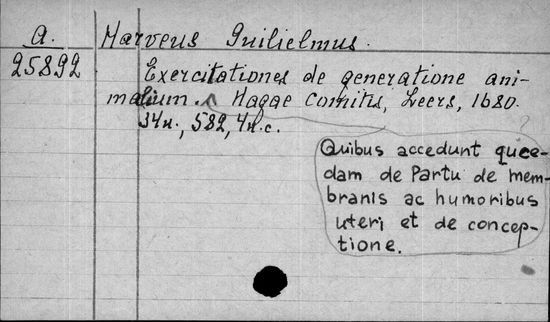 A.
25892
Harveus Guilielmus.
Exercitationes de generatione ani-
malium. Hagae Comitis, Leers, 1680.
34н., 582, 4н.с.
Quibus accedunt quae-
dam de Partu de mem-
branis ac humoribus
uteri et de concep-
tione.